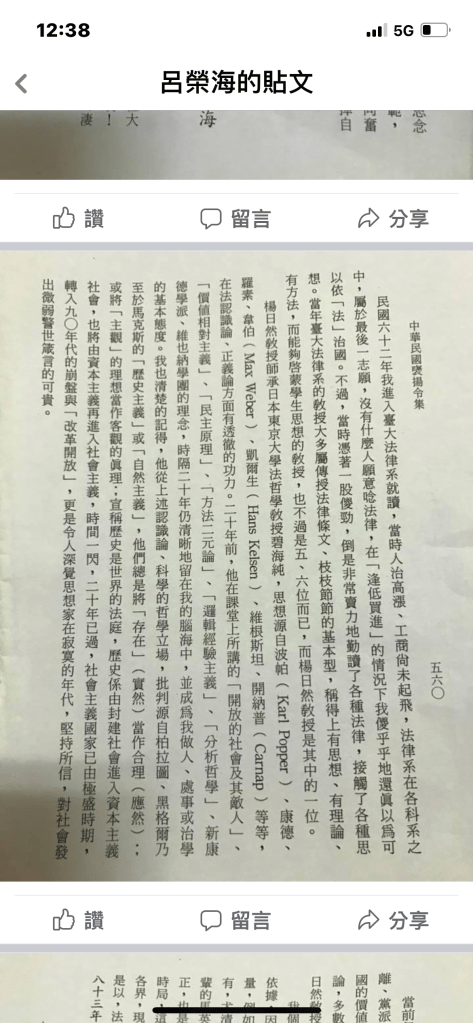 12:38
5G
呂榮海的貼文
念
範，
奮
自
海
大
！
淒
讚 留言 分享
中華民國褒揚令集
五六〇
民國六十二年我進入臺大法律系就讀，當時人治高漲、工商尚未起飛，法律系在各科系之
中，屬於最後一志願，沒有什麼人願意唸法律，在「逢低買進」的情況下我傻乎乎地還眞以爲可
以依「法」治國。不過，當時憑著一股傻勁，倒是非常賣力地勤讀了各種法律，接觸了各種思
想。當年臺大法律系的教授大多屬傳授法律條文、枝枝節節的基本型，稱得上有思想、有理論、
有方法，而能夠啓蒙學生思想的教授，也不過是五、六位而已，而楊日然教授是其中的一位。
楊日然教授師承日本東京大學法哲學教授碧海純，思想源自波帕（Karl Popper）、康德、
羅素、韋伯（Max Weber）、凱爾生（Hans Kelsen）、維根斯坦、開納普（Carnap）等等，
在法認識論、正義論方面有透徹的功力。二十年前，他在課堂上所講的「開放的社會及其敵人」、
「價值相對主義」、「民主原理」、「方法二元論」、「邏輯經驗主義」、「分析哲學」、新康
德學派、維也納學團的理念，時隔二十年仍清晰地留在我的腦海中，並成爲我做人、處事或治學
的基本態度。我也清楚的記得，他從上述認識論、科學的哲學立場，批判源自柏拉圖、黑格爾乃
至於馬克斯的「歷史主義」或「自然主義」，他們總是將「存在」（實然）當作合理（應然）；
或將「主觀」的理想當作客觀的眞理；宣稱歷史是世界的法庭，歷史係由封建社會進入資本主義
社會，也將由資本主義再進入社會主義，時間一閃，二十年已過，社會主義國家已由極盛時期，
轉入九〇年代的崩盤與「改革開放」，更是令人深覺思想家在寂寞的年代，堅持所信，對社會發
出微弱警世箴言的可貴。
讚 留言 分享
當前
離、黨派
國的價值
論，多數
日然教授
我個
依據，因
量，例如
輩的馬英
正，也是
時局，這
各界，現
是以，法
八十三年